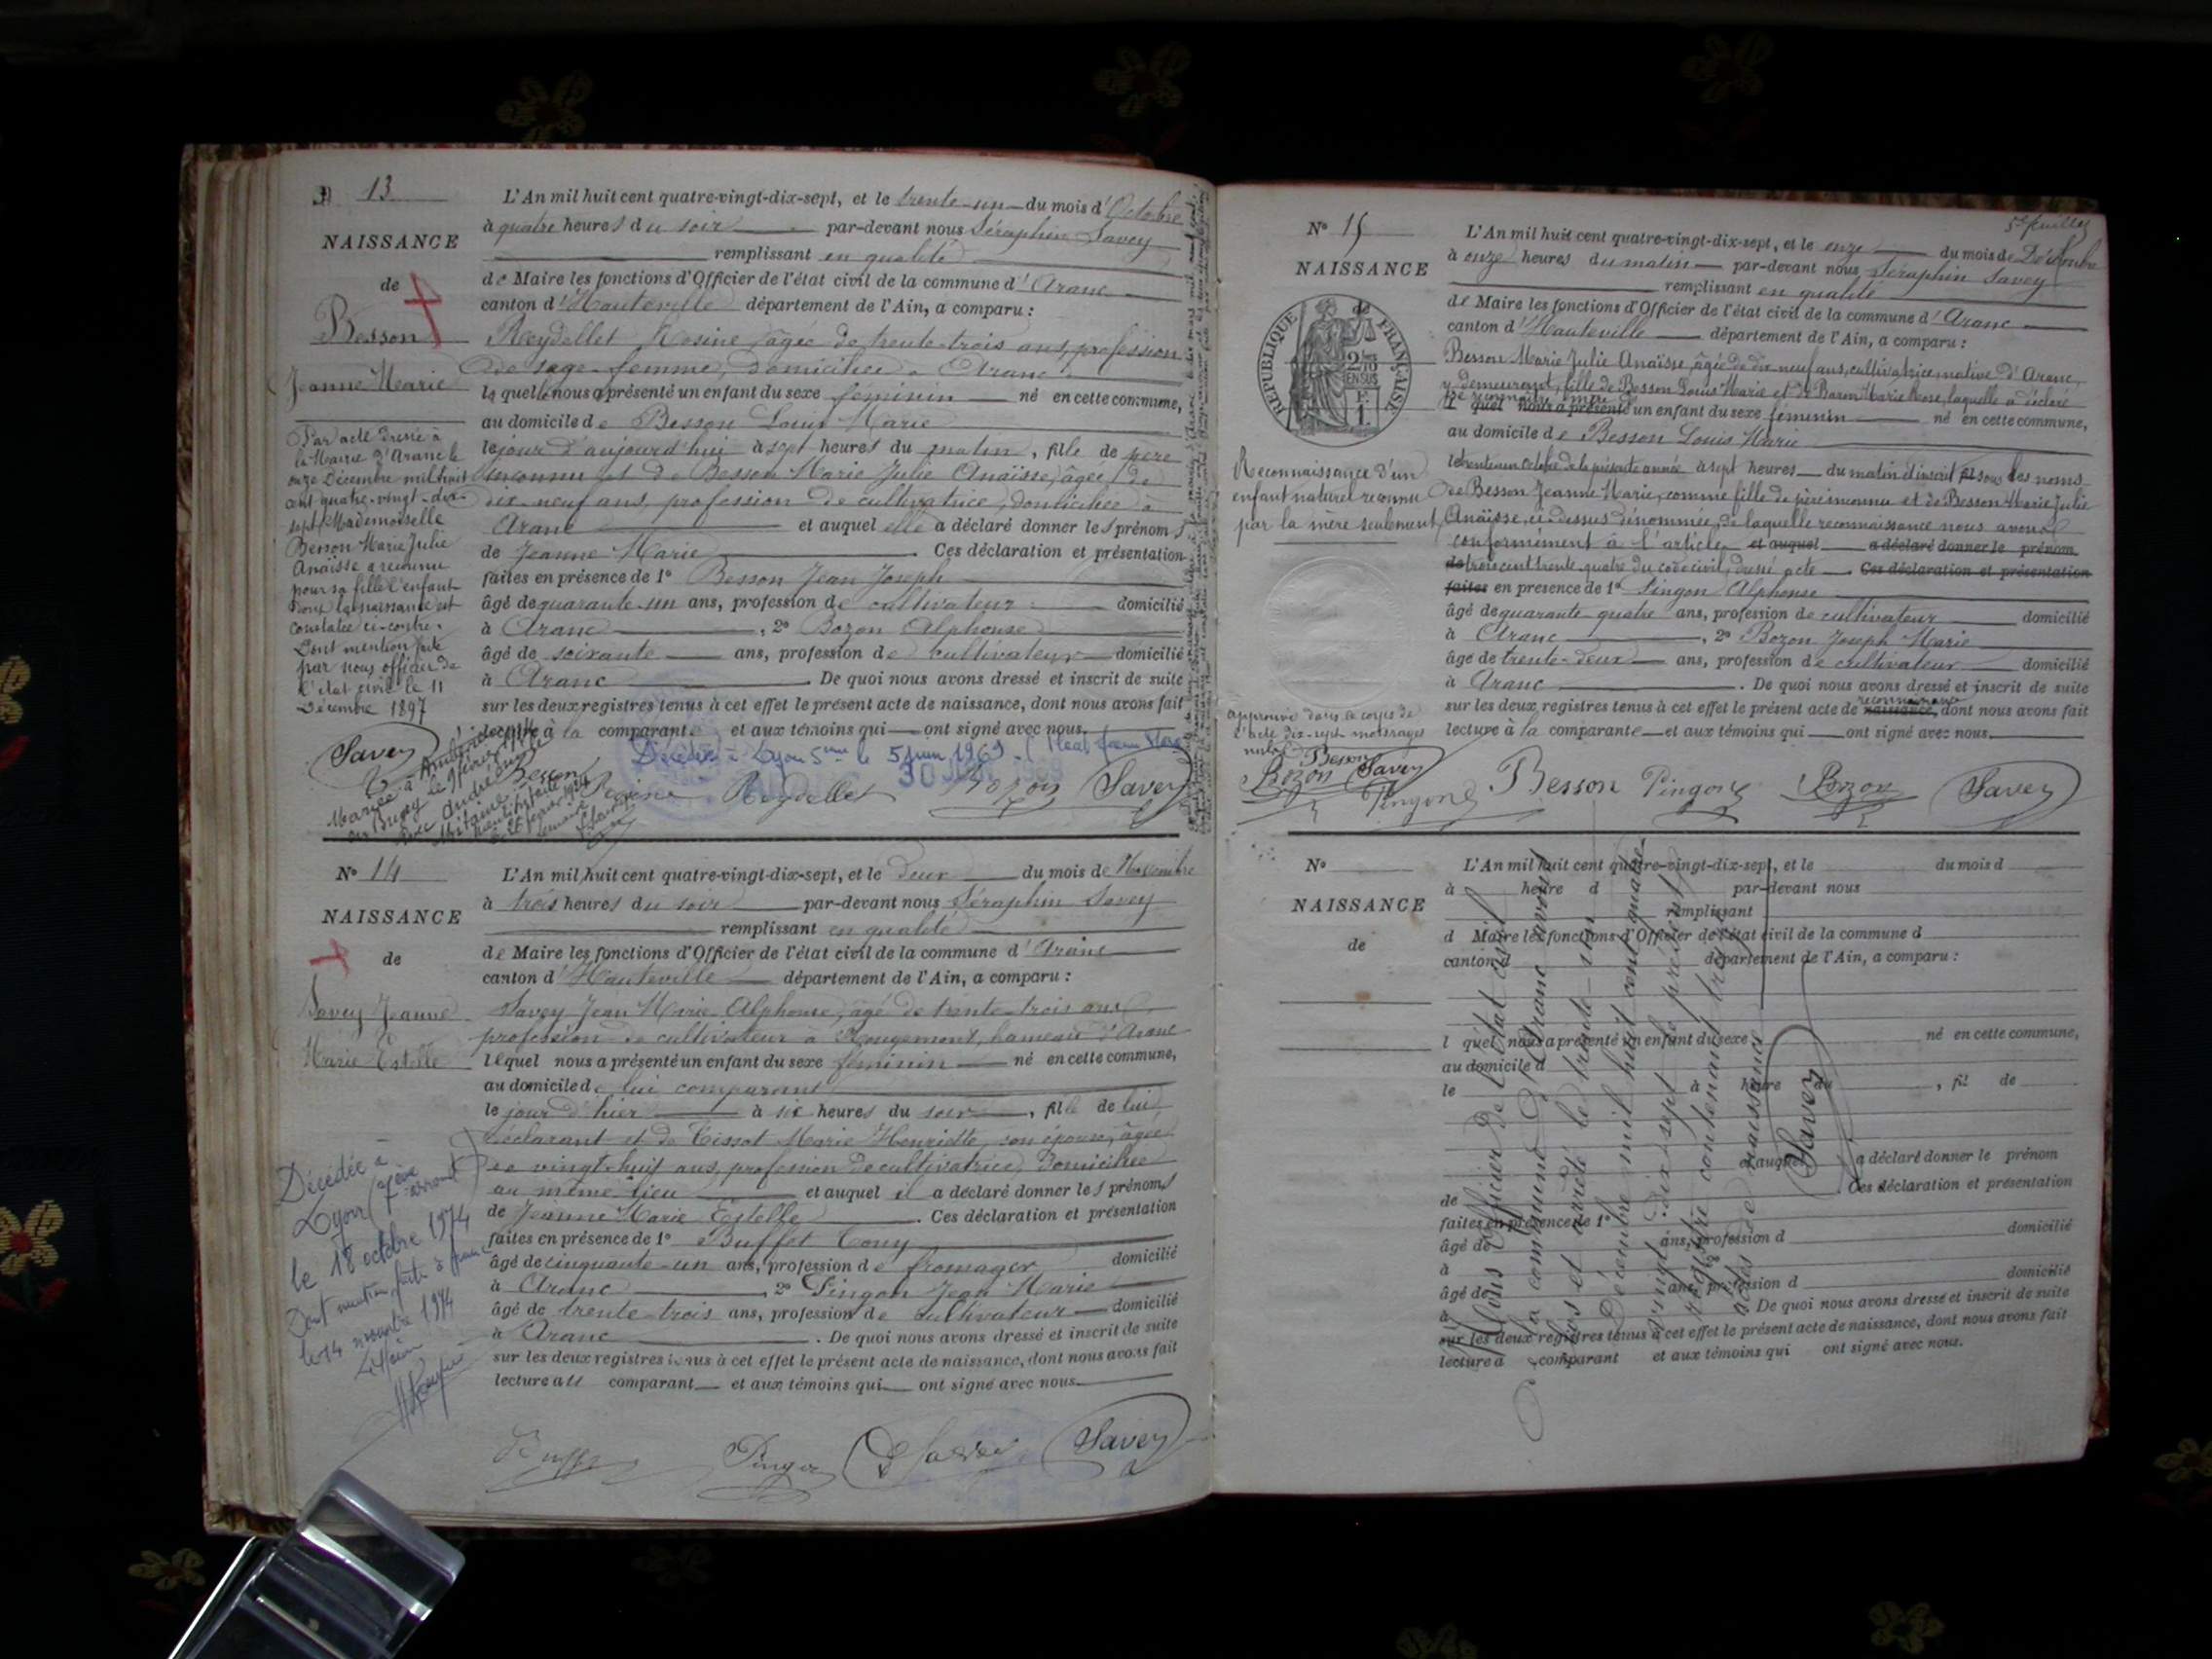 N° 13
NAISSANCE
de
Besson
Jeanne Marie
Par acte dressé à
la Mairie d'Aranc le
onze Décembre mil huit
cent quatre-vingt-dix-
sept Mademoiselle
Besson Marie Julie
Anaïsse a reconnu
pour sa fille l'enfant
dont la naissance est
constatée ci-contre.
Dont mention faite
par nous officier de
l'état civil le 11
Décembre 1897
Savey
L'An mil huit cent quatre-vingt-dix-sept, et le trente-un du mois d'Octobre
à quatre heures du soir par-devant nous Séraphin Savey
remplissant en qualité
de Maire les fonctions d'Officier de l'état civil de la commune d'Aranc
canton d'Hauteville département de l'Ain, a comparu :
Reydellet Rosine, âgée de trente-trois ans, profession
de sage-femme, domiciliée à Aranc
laquelle nous a présenté un enfant du sexe féminin né en cette commune,
au domicile de Besson Louis Marie
le jour d'aujourd'hui à sept heures du matin, fille de père
inconnu et de Besson Marie Julie Anaïsse, âgée de
dix-neuf ans, profession de cultivatrice, domiciliée à
Aranc et auquel elle a déclaré donner les prénoms
de Jeanne Marie. Ces déclaration et présentation
faites en présence de 1° Besson Jean Joseph
âgé de quarante-un ans, profession de cultivateur domicilié
à Aranc, 2° Bozon Alphonse
âgé de soixante ans, profession de cultivateur domicilié
à Aranc. De quoi nous avons dressé et inscrit de suite
sur les deux registres tenus à cet effet le présent acte de naissance, dont nous avons fait
lecture à la comparante et aux témoins qui ont signé avec nous.
Décédée à Lyon 5ème le 5 juin 1969
Mariée à
le 9 février
avec André
Besson Rosine Reydellet Bozon Savey
N° 14
NAISSANCE
de
Savey Jeanne
Marie Estelle
Décédée à
Lyon (7ème arrond)
le 18 octobre 1974
Dont mention faite
le 14 novembre 1974
L'An mil huit cent quatre-vingt-dix-sept, et le deux du mois de Novembre
à trois heures du soir par-devant nous Séraphin Savey
remplissant en qualité
de Maire les fonctions d'Officier de l'état civil de la commune d'Aranc
canton d'Hauteville département de l'Ain, a comparu :
Savey Jean Marie Alphonse, âgé de trente-trois ans,
profession de cultivateur à Rougemont, hameau d'Aranc
lequel nous a présenté un enfant du sexe féminin né en cette commune,
au domicile de lui comparant
le jour d'hier à six heures du soir, fille de lui
déclarant et de Tissot Marie Henriette, son épouse, âgée
de vingt-huit ans, profession de cultivatrice, domiciliée
au même lieu et auquel il a déclaré donner les prénoms
de Jeanne Marie Estelle. Ces déclaration et présentation
faites en présence de 1° Buffet Tony
âgé de cinquante-un ans, profession de fromager domicilié
à Aranc, 2° Pingon Jean Marie
âgé de trente-trois ans, profession de cultivateur domicilié
à Aranc. De quoi nous avons dressé et inscrit de suite
sur les deux registres tenus à cet effet le présent acte de naissance, dont nous avons fait
lecture au comparant et aux témoins qui ont signé avec nous.
Buffet Pingon Savey Savey
5e feuillet
N° 15
NAISSANCE
de
RÉPUBLIQUE FRANÇAISE
Reconnaissance d'un
enfant naturel reconnu
par la mère seulement
L'An mil huit cent quatre-vingt-dix-sept, et le onze du mois de Décembre
à onze heures du matin par-devant nous Séraphin Savey
remplissant en qualité
de Maire les fonctions d'Officier de l'état civil de la commune d'Aranc
canton d'Hauteville département de l'Ain, a comparu :
Besson Marie Julie Anaïsse, âgée de dix-neuf ans, cultivatrice native d'Aranc,
y demeurant, fille de Besson Louis Marie et de Bozon Marie Rose, laquelle a déclaré
l quel nous a présenté un enfant du sexe féminin né en cette commune,
au domicile de Besson Louis Marie
le trente un octobre de la présente année à sept heures du matin et inscrit sous les noms
de Besson Jeanne Marie, comme fille de père inconnu et de Besson Marie Julie
Anaïsse, ci-dessus dénommée, de laquelle reconnaissance nous avons
conformément à l'article et auquel a déclaré donner le prénom
de trois cent trente quatre du code civil, dressé acte. Ces déclaration et présentation
faites en présence de 1° Pingon Alphonse
âgé de quarante-quatre ans, profession de cultivateur domicilié
à Aranc, 2° Bozon Joseph Marie
âgé de trente-deux ans, profession de cultivateur domicilié
à Aranc. De quoi nous avons dressé et inscrit de suite
sur les deux registres tenus à cet effet le présent acte de naissance reconnaissance, dont nous avons fait
lecture à la comparante et aux témoins qui ont signé avec nous.
approuvé dans le corps de
l'acte dix-sept mots rayés
nuls
Besson
Bozon Savey
Pingon Besson Pingon Bozon Savey
N°
NAISSANCE
de
L'An mil huit cent quatre-vingt-dix-sept, et le du mois d
à heure d par-devant nous
remplissant
d Maire les fonctions d'Officier de l'état civil de la commune d
canton d département de l'Ain, a comparu :
l quel nous a présenté un enfant du sexe né en cette commune,
au domicile d
le à heure du , fil de
et auquel a déclaré donner le prénom
de . Ces déclaration et présentation
faites en présence de 1°
âgé de ans, profession d domicilié
à , 2°
âgé de ans, profession d domicilié
à . De quoi nous avons dressé et inscrit de suite
sur les deux registres tenus à cet effet le présent acte de naissance, dont nous avons fait
lecture à comparant et aux témoins qui ont signé avec nous.
Nous Officier de l'état civil
de la commune d'Aranc avons
clos et arrêté le trente-un
Décembre mil huit cent quatre-
vingt-dix-sept le présent
registre contenant treize
actes de naissance
Savey